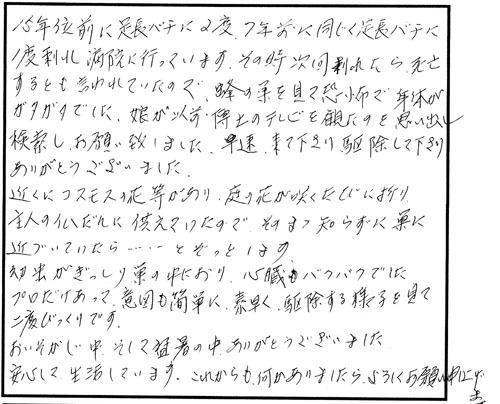 15年位前に足長バチに2度、7年前に同じく足長バチに
1度刺れ病院に行っています。その時次回刺れたら、死亡
するとも言われていたので、蜂の巣を見て恐怖で身体が
ガタガタでした。娘が以前、博士のテレビを観たのを思い出し
検索し、お願い致しました。早速、来て下さり駆除して下さり
ありがとうございました。
近くにコスモスの花等があり、庭の花が咲くたびに折り、
主人の仏だんに供えていたので、そのまゝ知らずに巣に
近づいていたら……とぞっとします
幼虫がぎっしり巣の中におり、心臓もバクバクでした
プロだけあって、意図も簡単に、素早く、駆除する様子を見て
二度びっくりです。
おいそがしい中、そして猛暑の中、ありがとうございました
安心して、生活しています。これからも、何かありましたら、よろしくお願い申し上げ
ます